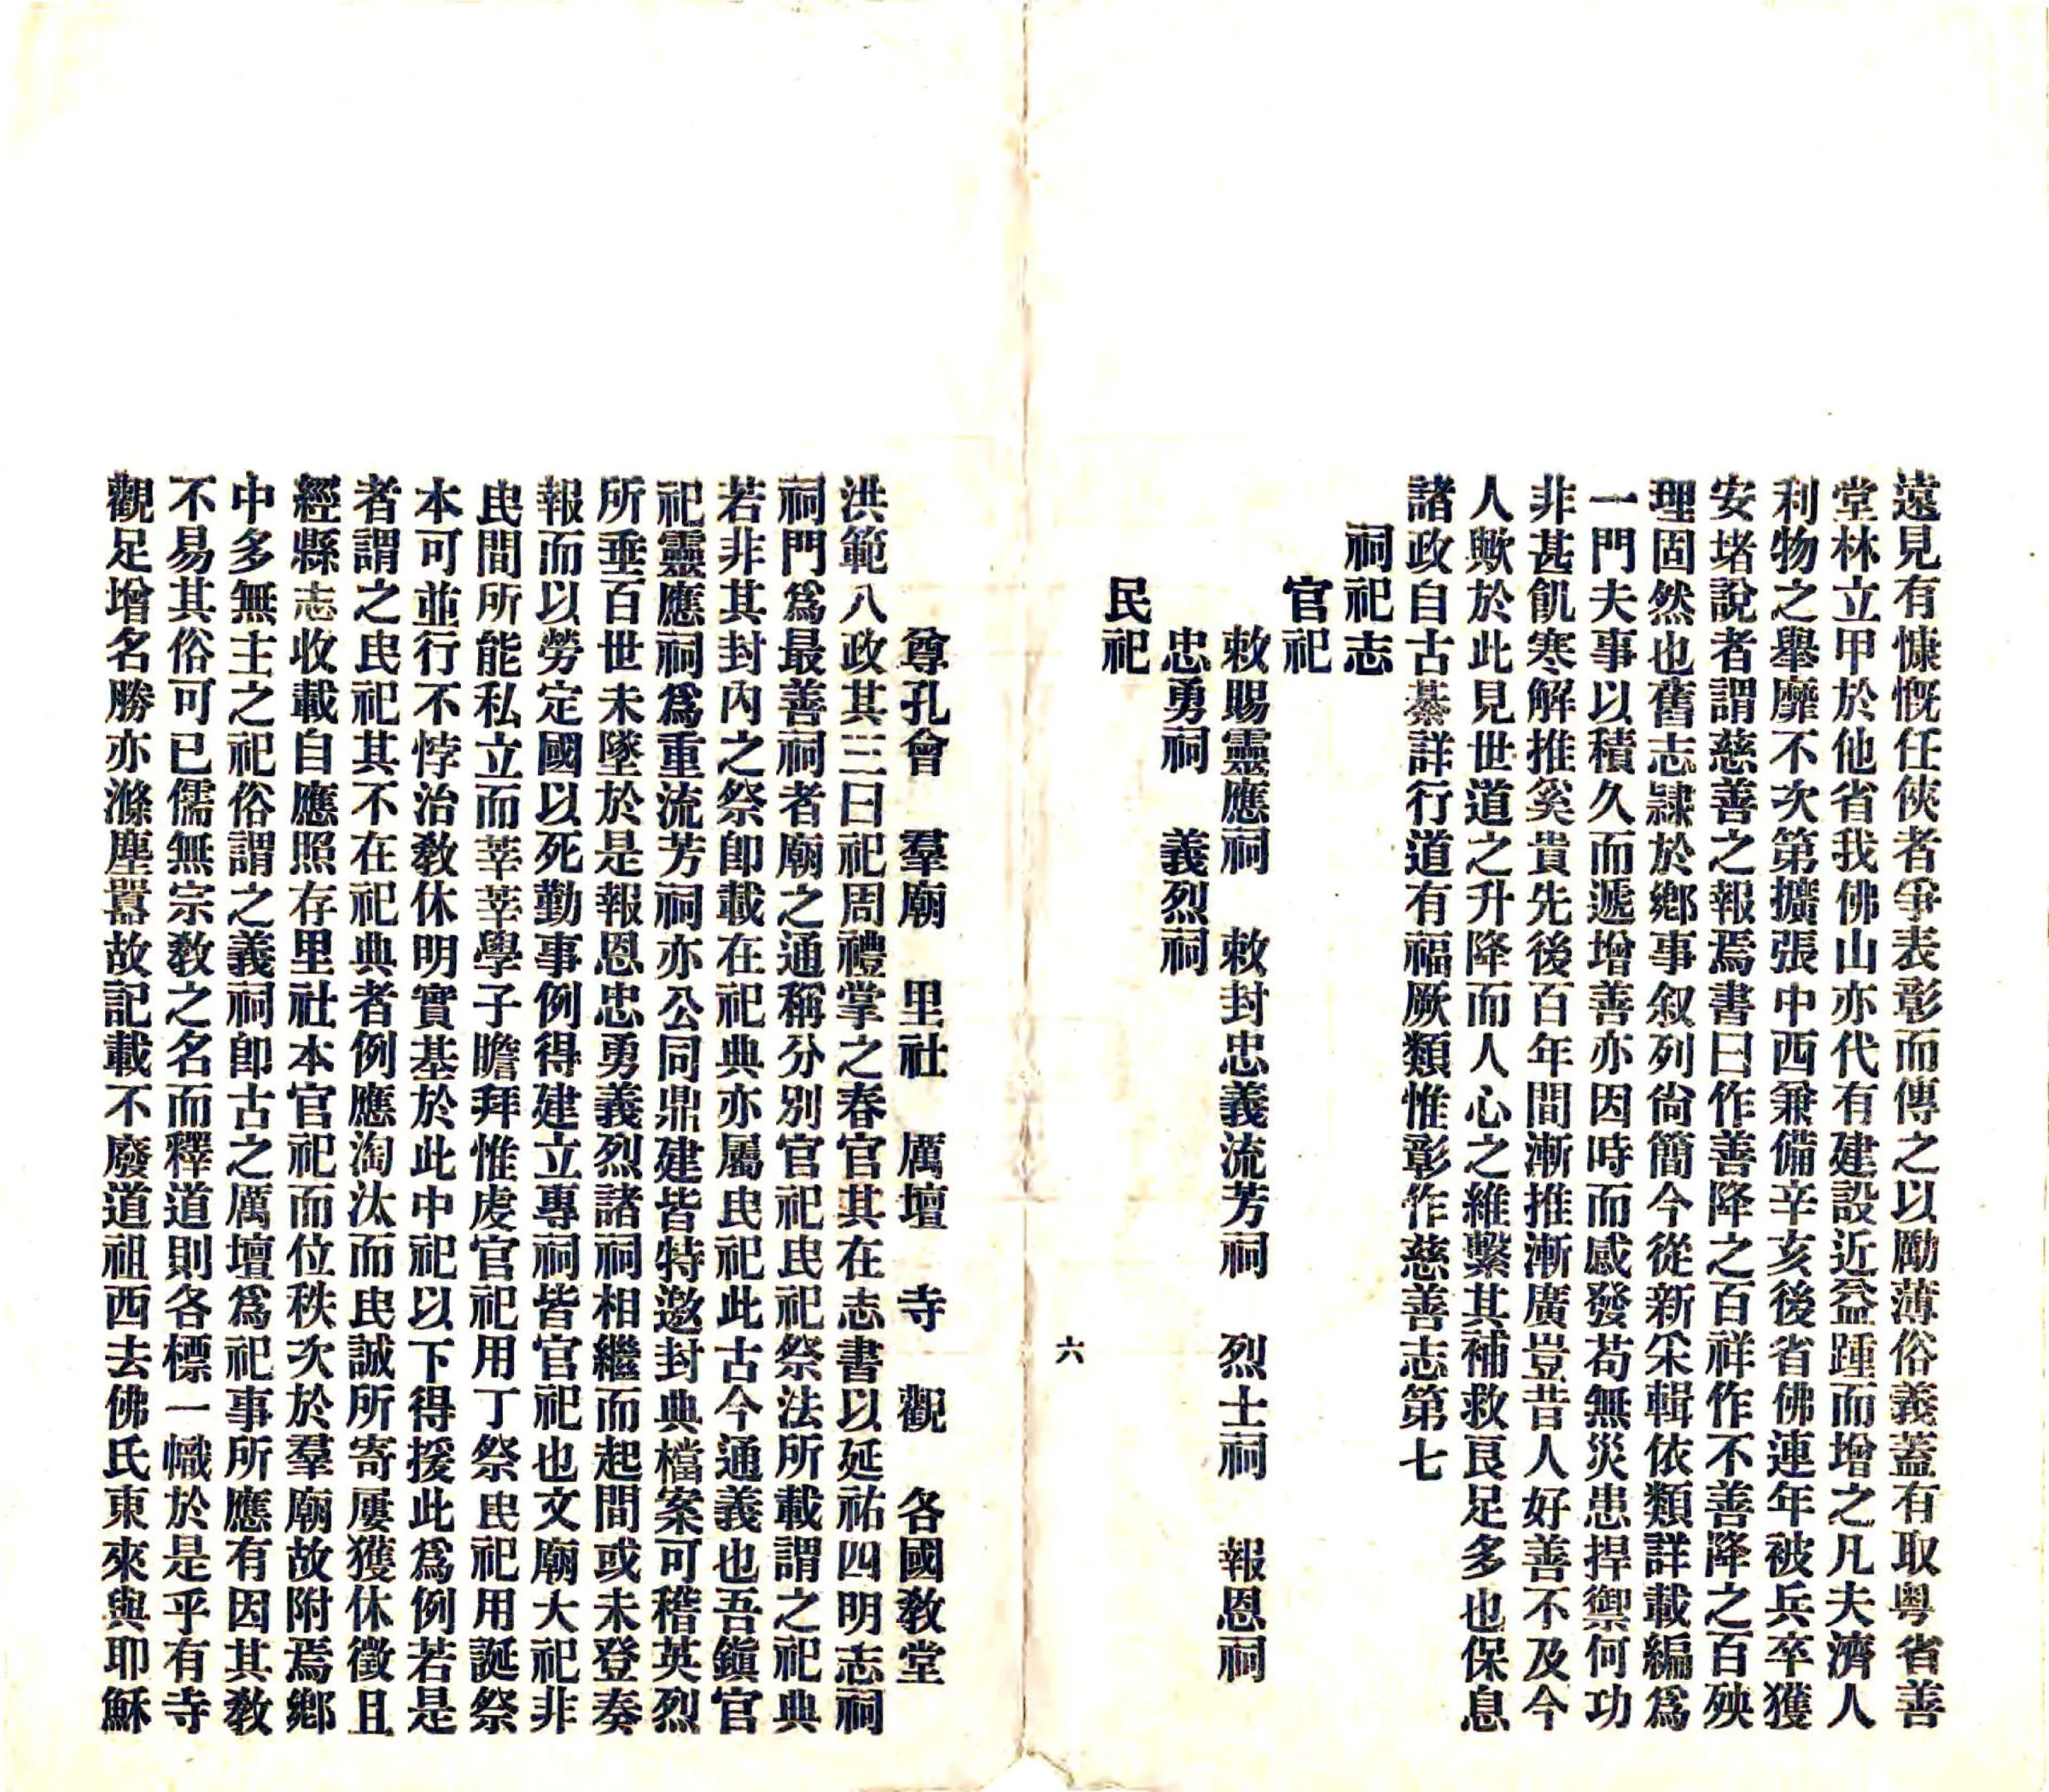 遠見有慷慨任俠者爭表彰而傳之以勵薄俗義蓋有取粤省善
堂林立甲於他省我佛山亦代有建設近益踵而增之凡夫濟人
利物之舉靡不次第擴張中西兼備辛亥後省佛連年被兵卒獲
安堵說者謂慈善之報焉書曰作善降之百祥作不善降之百殃
理固然也舊志隷於鄉事叙列尙簡今從新采輯依類詳載編爲
一門夫事以積久而遞增善亦因時而感發苟無災患捍禦何功
非甚飢寒解推奚貴先後百年間漸推漸廣豈昔人好善不及今
人歟於此見世道之升降而人心之維繫其補救良足多也保息
諸政自古綦詳行道有福厥類惟彰作慈善志第七
祠祀志
官祀
敕賜靈應祠　敕封忠義流芳祠　烈士祠　報恩祠
忠勇祠　義烈祠
民祀
六
尊孔會　羣廟　里社　厲壇　寺　觀　各國教堂
洪範八政其三曰祀周禮掌之春官其在志書以延祐四明志祠
祠門爲最善祠者廟之通稱分別官祀民祀祭法所載謂之祀典
若非其封內之祭卽載在祀典亦屬民祀此古今通義也吾鎭官
祀靈應祠爲重流芳祠亦公同鼎建皆特邀封典檔案可稽英烈
所垂百世未墜於是報恩忠勇義烈諸祠相繼而起間或未登奏
報而以勞定國以死勤事例得建立專祠皆官祀也文廟大祀非
民間所能私立而莘莘學子瞻拜惟虔官祀用丁祭民祀用誕祭
本可並行不悖治教休明實基於此中祀以下得援此爲例若是
者謂之民祀其不在祀典者例應淘汰而民誠所寄屢獲休徵且
經縣志收載自應照存里社本官祀而位秩次於羣廟故附焉鄉
中多無主之祀俗謂之義祠卽古之厲壇爲祀事所應有因其教
不易其俗可已儒無宗教之名而釋道則各標一幟於是乎有寺
觀足增名勝亦滌塵囂故記載不廢道祖西去佛氏東來與耶穌